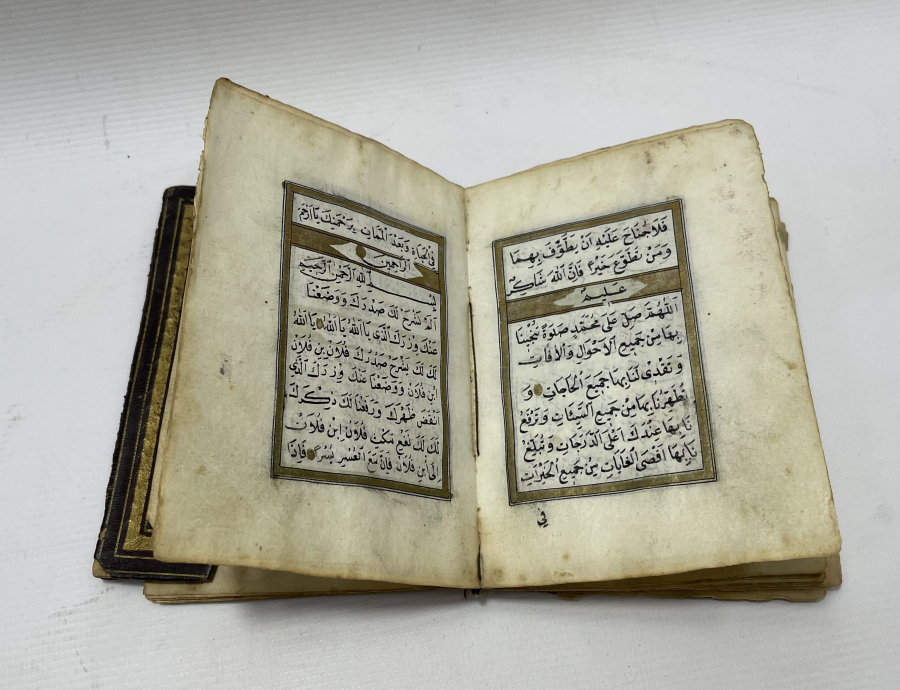 فَلَا جُنَاحَ عَلَيْهِ اَنْ يَطَّوَّفَ بِهِمَا
وَمَنْ تَطَوَّعَ خَيْرًا فَاِنَّ اللّٰهَ شَاكِرٌ
عَلِيمٌ
اَللّٰهُمَّ صَلِّ عَلٰى مُحَمَّدٍ صَلٰوةً تُنْجِينَا
بِهَا مِنْ جَمِيعِ الْاَحْوَالِ وَالْاٰفَاتِ
وَتَقْضِى لَنَا بِهَا جَمِيعَ الْحَاجَاتِ وَ
تُطَهِّرُنَا بِهَا مِنْ جَمِيعِ السَّيِّئَاتِ وَتَرْفَعُ
نَا بِهَا عِنْدَكَ اَعْلَى الدَّرَجَاتِ وَتُبَلِّغُ
نَا بِهَا اَقْصَى الْغَايَاتِ مِنْ جَمِيعِ الْخَيْرَاتِ
فِى
فِى الْحَيَاةِ وَبَعْدَ الْمَمَاتِ بِرَحْمَتِكَ يَا اَرْحَمَ
الرَّاحِمِينَ
بِسْمِ اللّٰهِ الرَّحْمٰنِ الرَّحِيمِ
اَلَمْ نَشْرَحْ لَكَ صَدْرَكَ وَوَضَعْنَا
عَنْكَ وِزْرَكَ الَّذِى يَا اَللّٰهُ يَا اَللّٰهُ يَا اَللّٰهُ
لَكَ لَكَ يَشْرَحْ صَدْرَكَ فُلَانْ بِنْ فُلَانْ
اِبْنِ فُلَانْ وَوَضَعْنَا عَنْكَ وِزْرَكَ الَّذِى
اَنْقَضَ ظَهْرَكَ وَرَفَعْنَا لَكَ ذِكْرَكَ
لَكَ لَكَ فُلَانْ اِبْنِ فُلَانْ
اِلٰى ابْنِ فُلَانْ فَاِنَّ مَعَ الْعُسْرِ يُسْرًا فَاِذَا